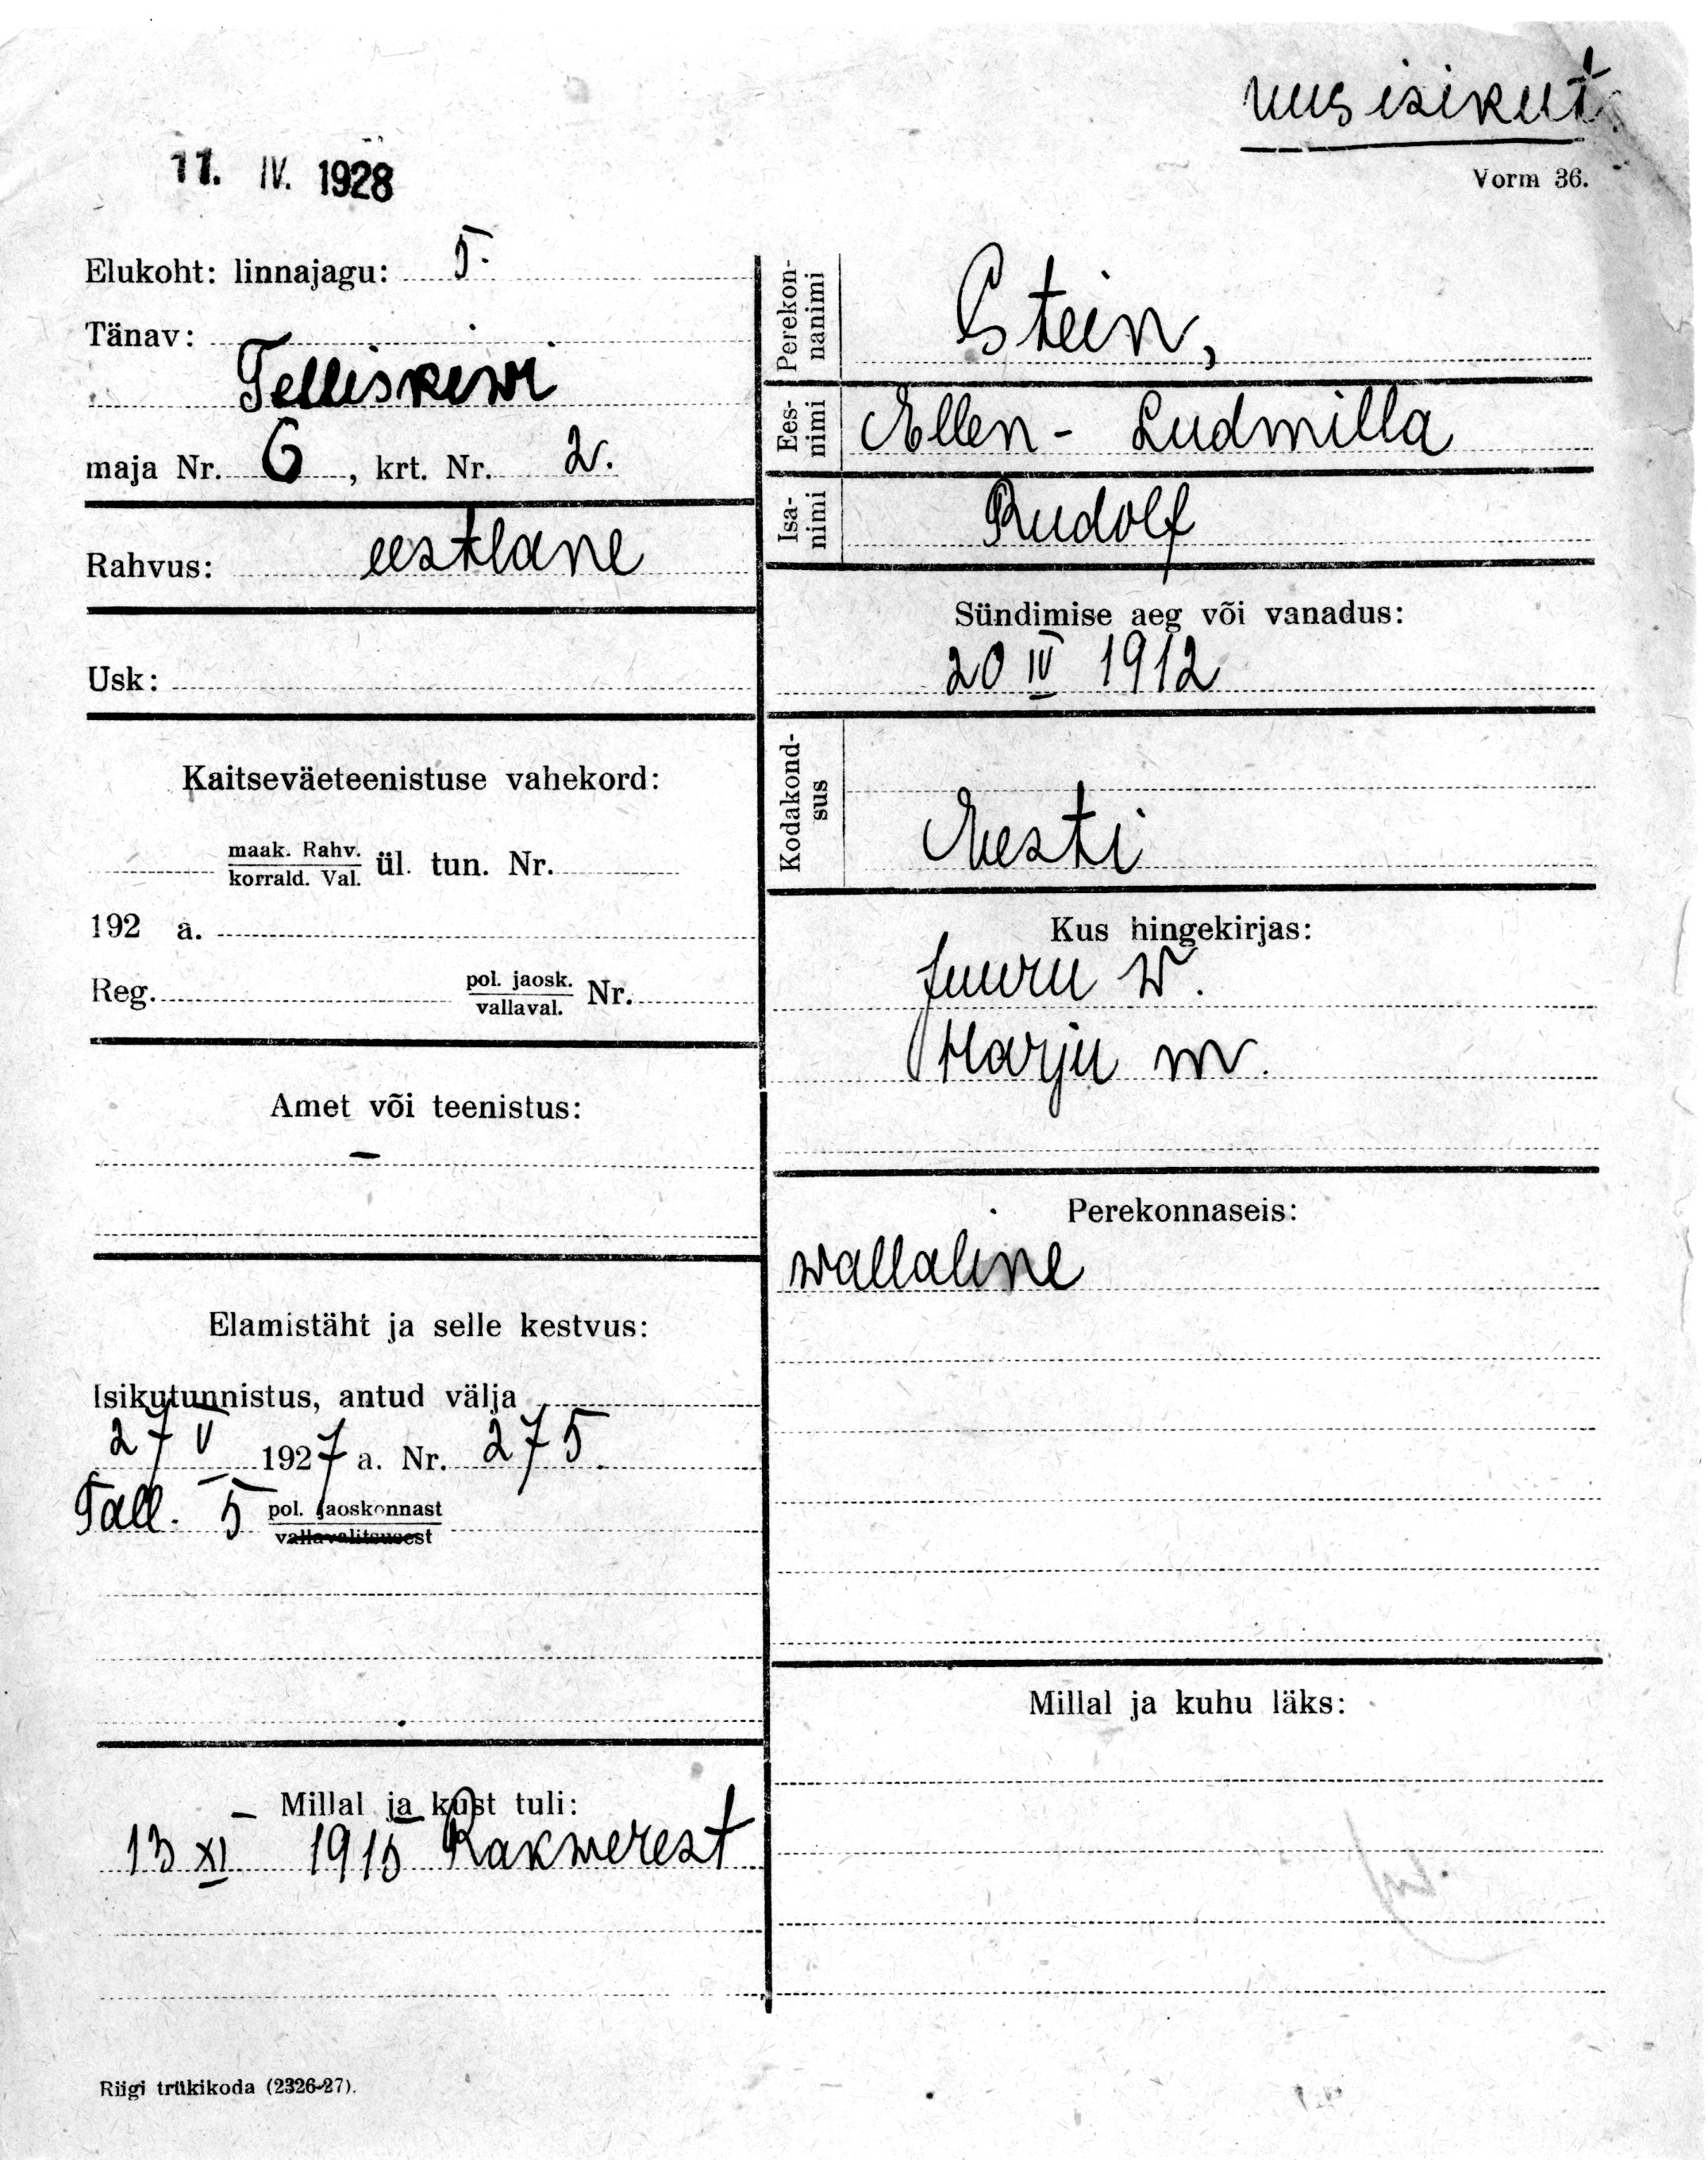 uus isikut.
Vorm 36.
11. IV. 1928
Elukoht: linnajagu: 5.
Tänav:
Telliskiwi
maja Nr. 6, krt. Nr. 2.
Rahvus: eestlane
Usk:
Kaitseväeteenistuse vahekord:
maak. Rahv.
korrald. Val. ül. tun. Nr.
192 a.
Reg. pol. jaosk.
vallaval. Nr.
Amet või teenistus:
–
Elamistäht ja selle kestvus:
Isikutunnistus, antud välja
27 V 1927 a. Nr. 275.
Tall. 5 pol. jaoskonnast
vallavalitsusest
Millal ja kust tuli:
13 XI 1915 Rakwerest
Riigi trükikoda (2326-27).
Perekon-
nanimi
Stein,
Ees-
nimi
Ellen- Ludmilla
Isa-
nimi
Rudolf
Sündimise aeg või vanadus:
20 IV 1912
Kodakond-
sus
Eesti
Kus hingekirjas:
Juuru w.
Harju m.
Perekonnaseis:
wallaline
Millal ja kuhu läks: